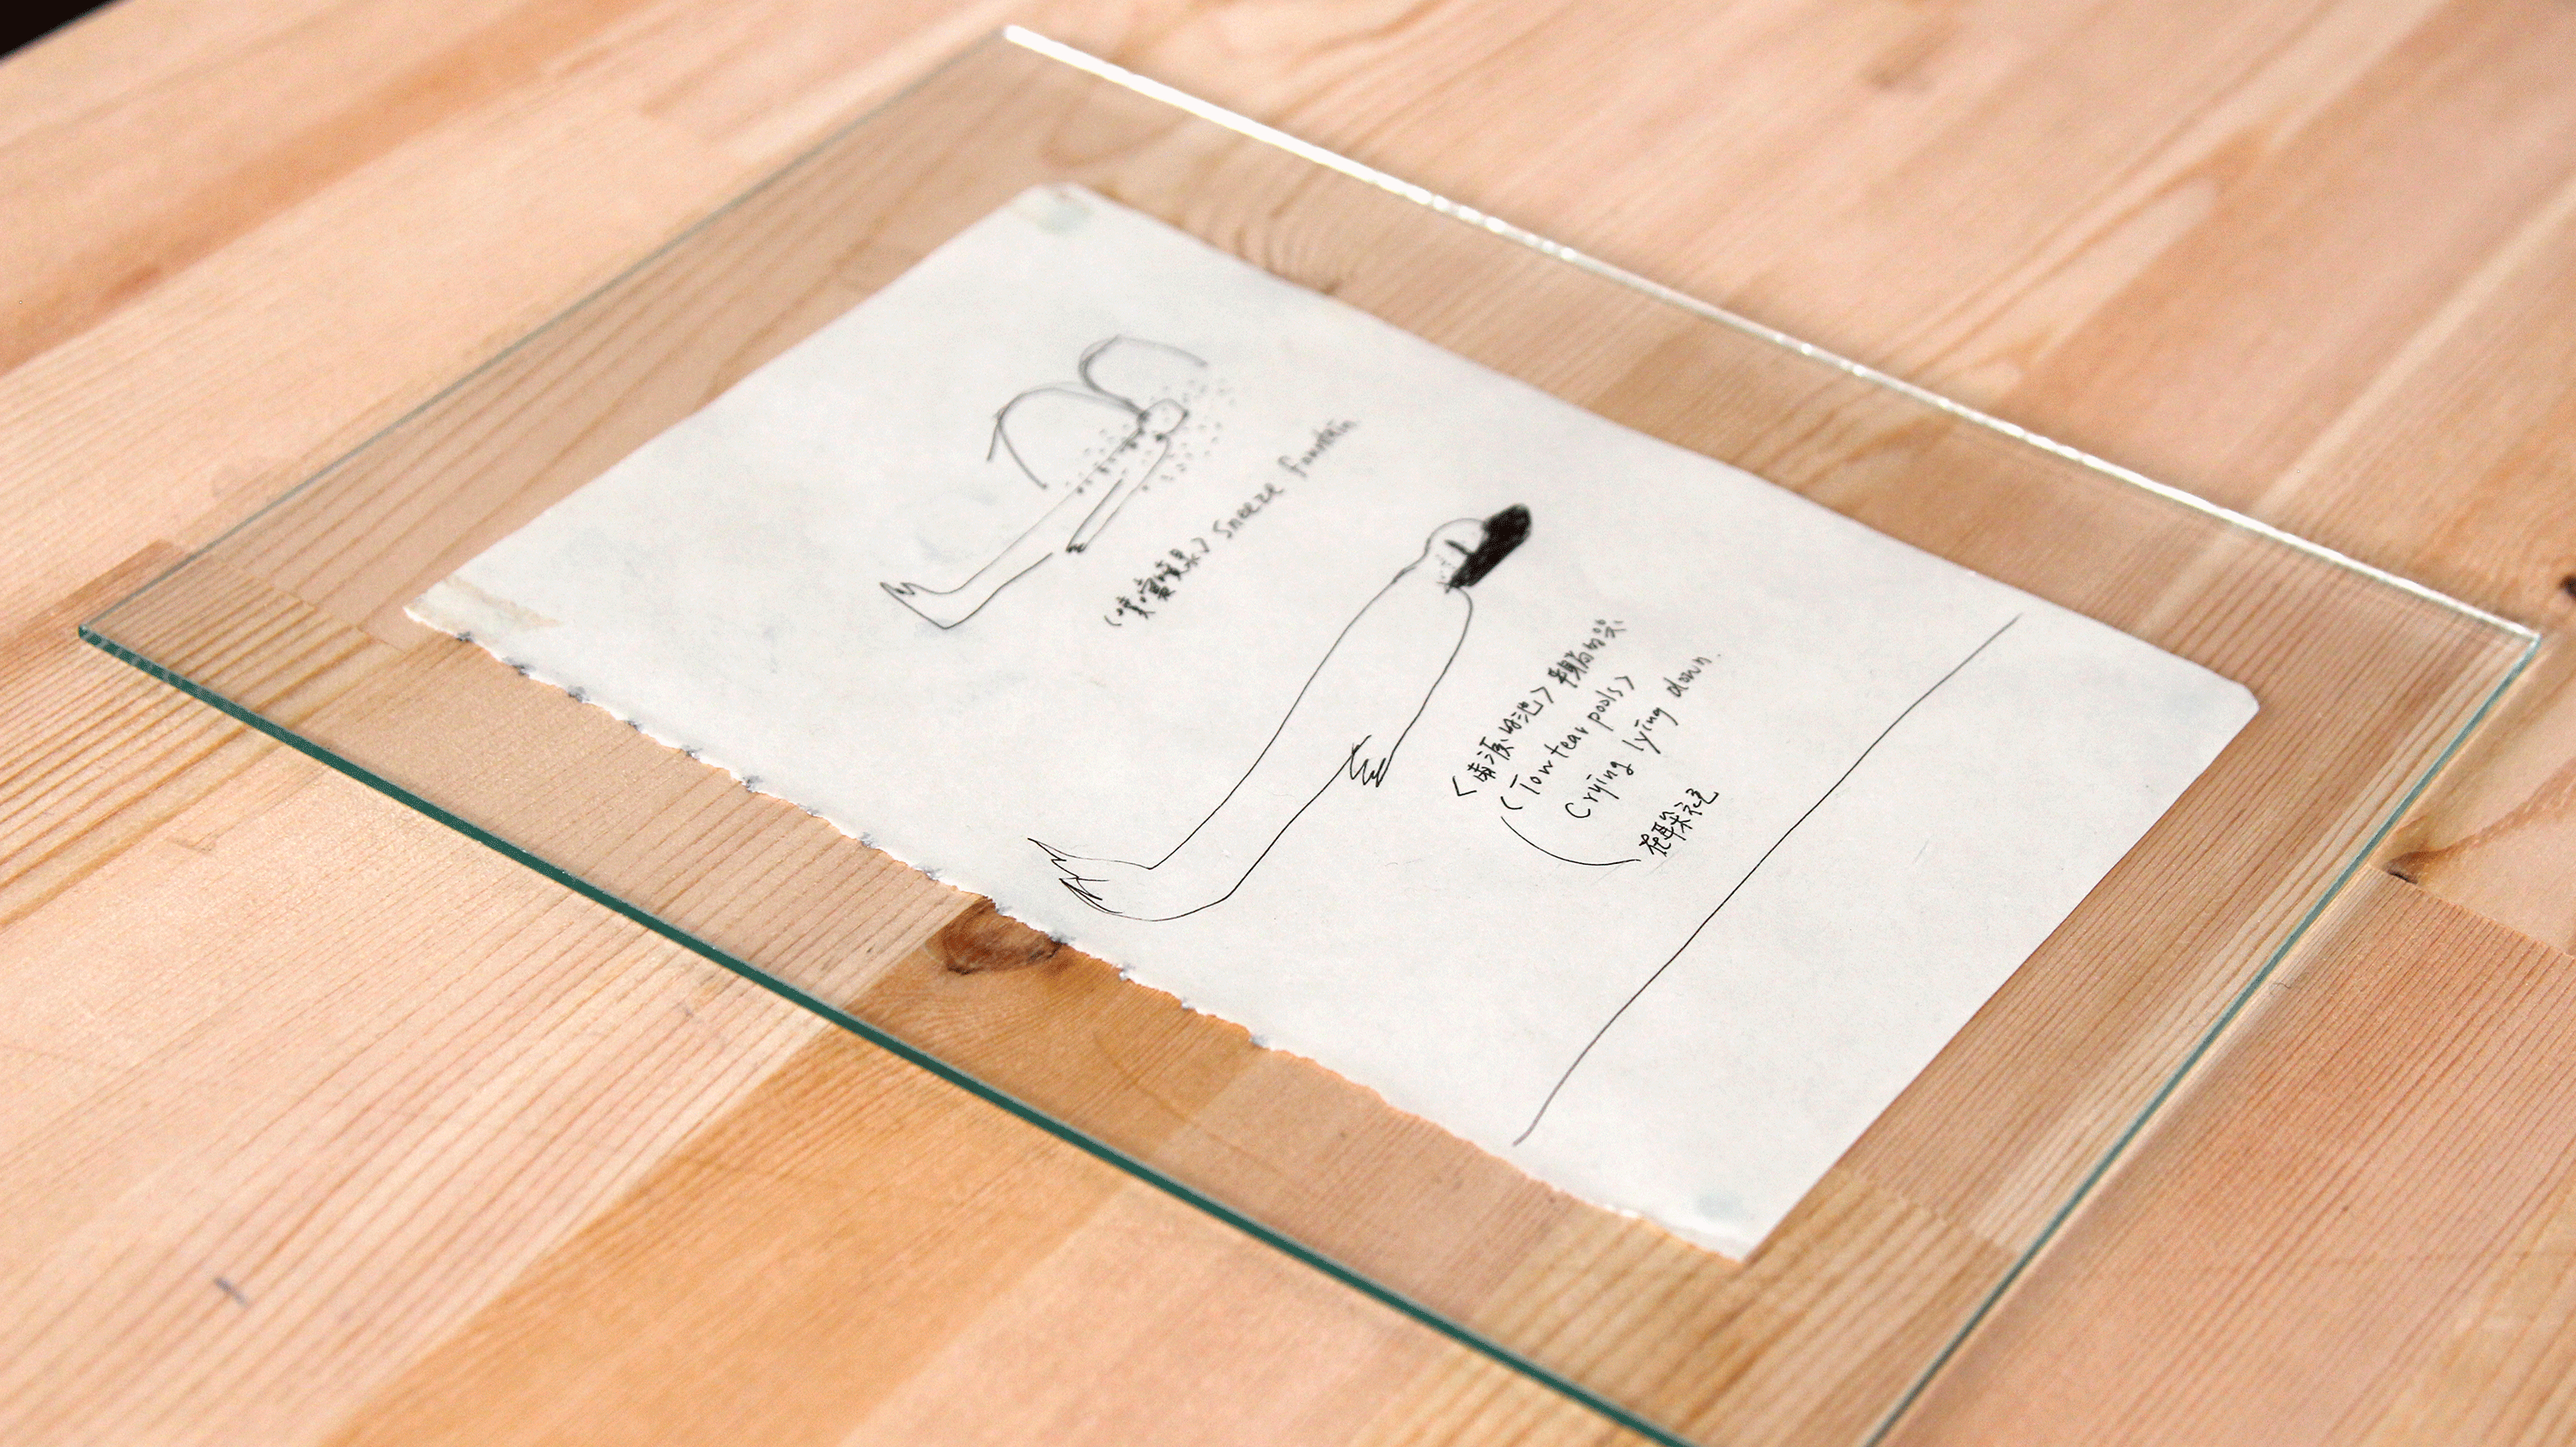 (喷嚏喷泉) Sneeze fountain
<两滴的池> 平躺的哭
(Tow tear pools)
Crying lying down.
在耳朵里